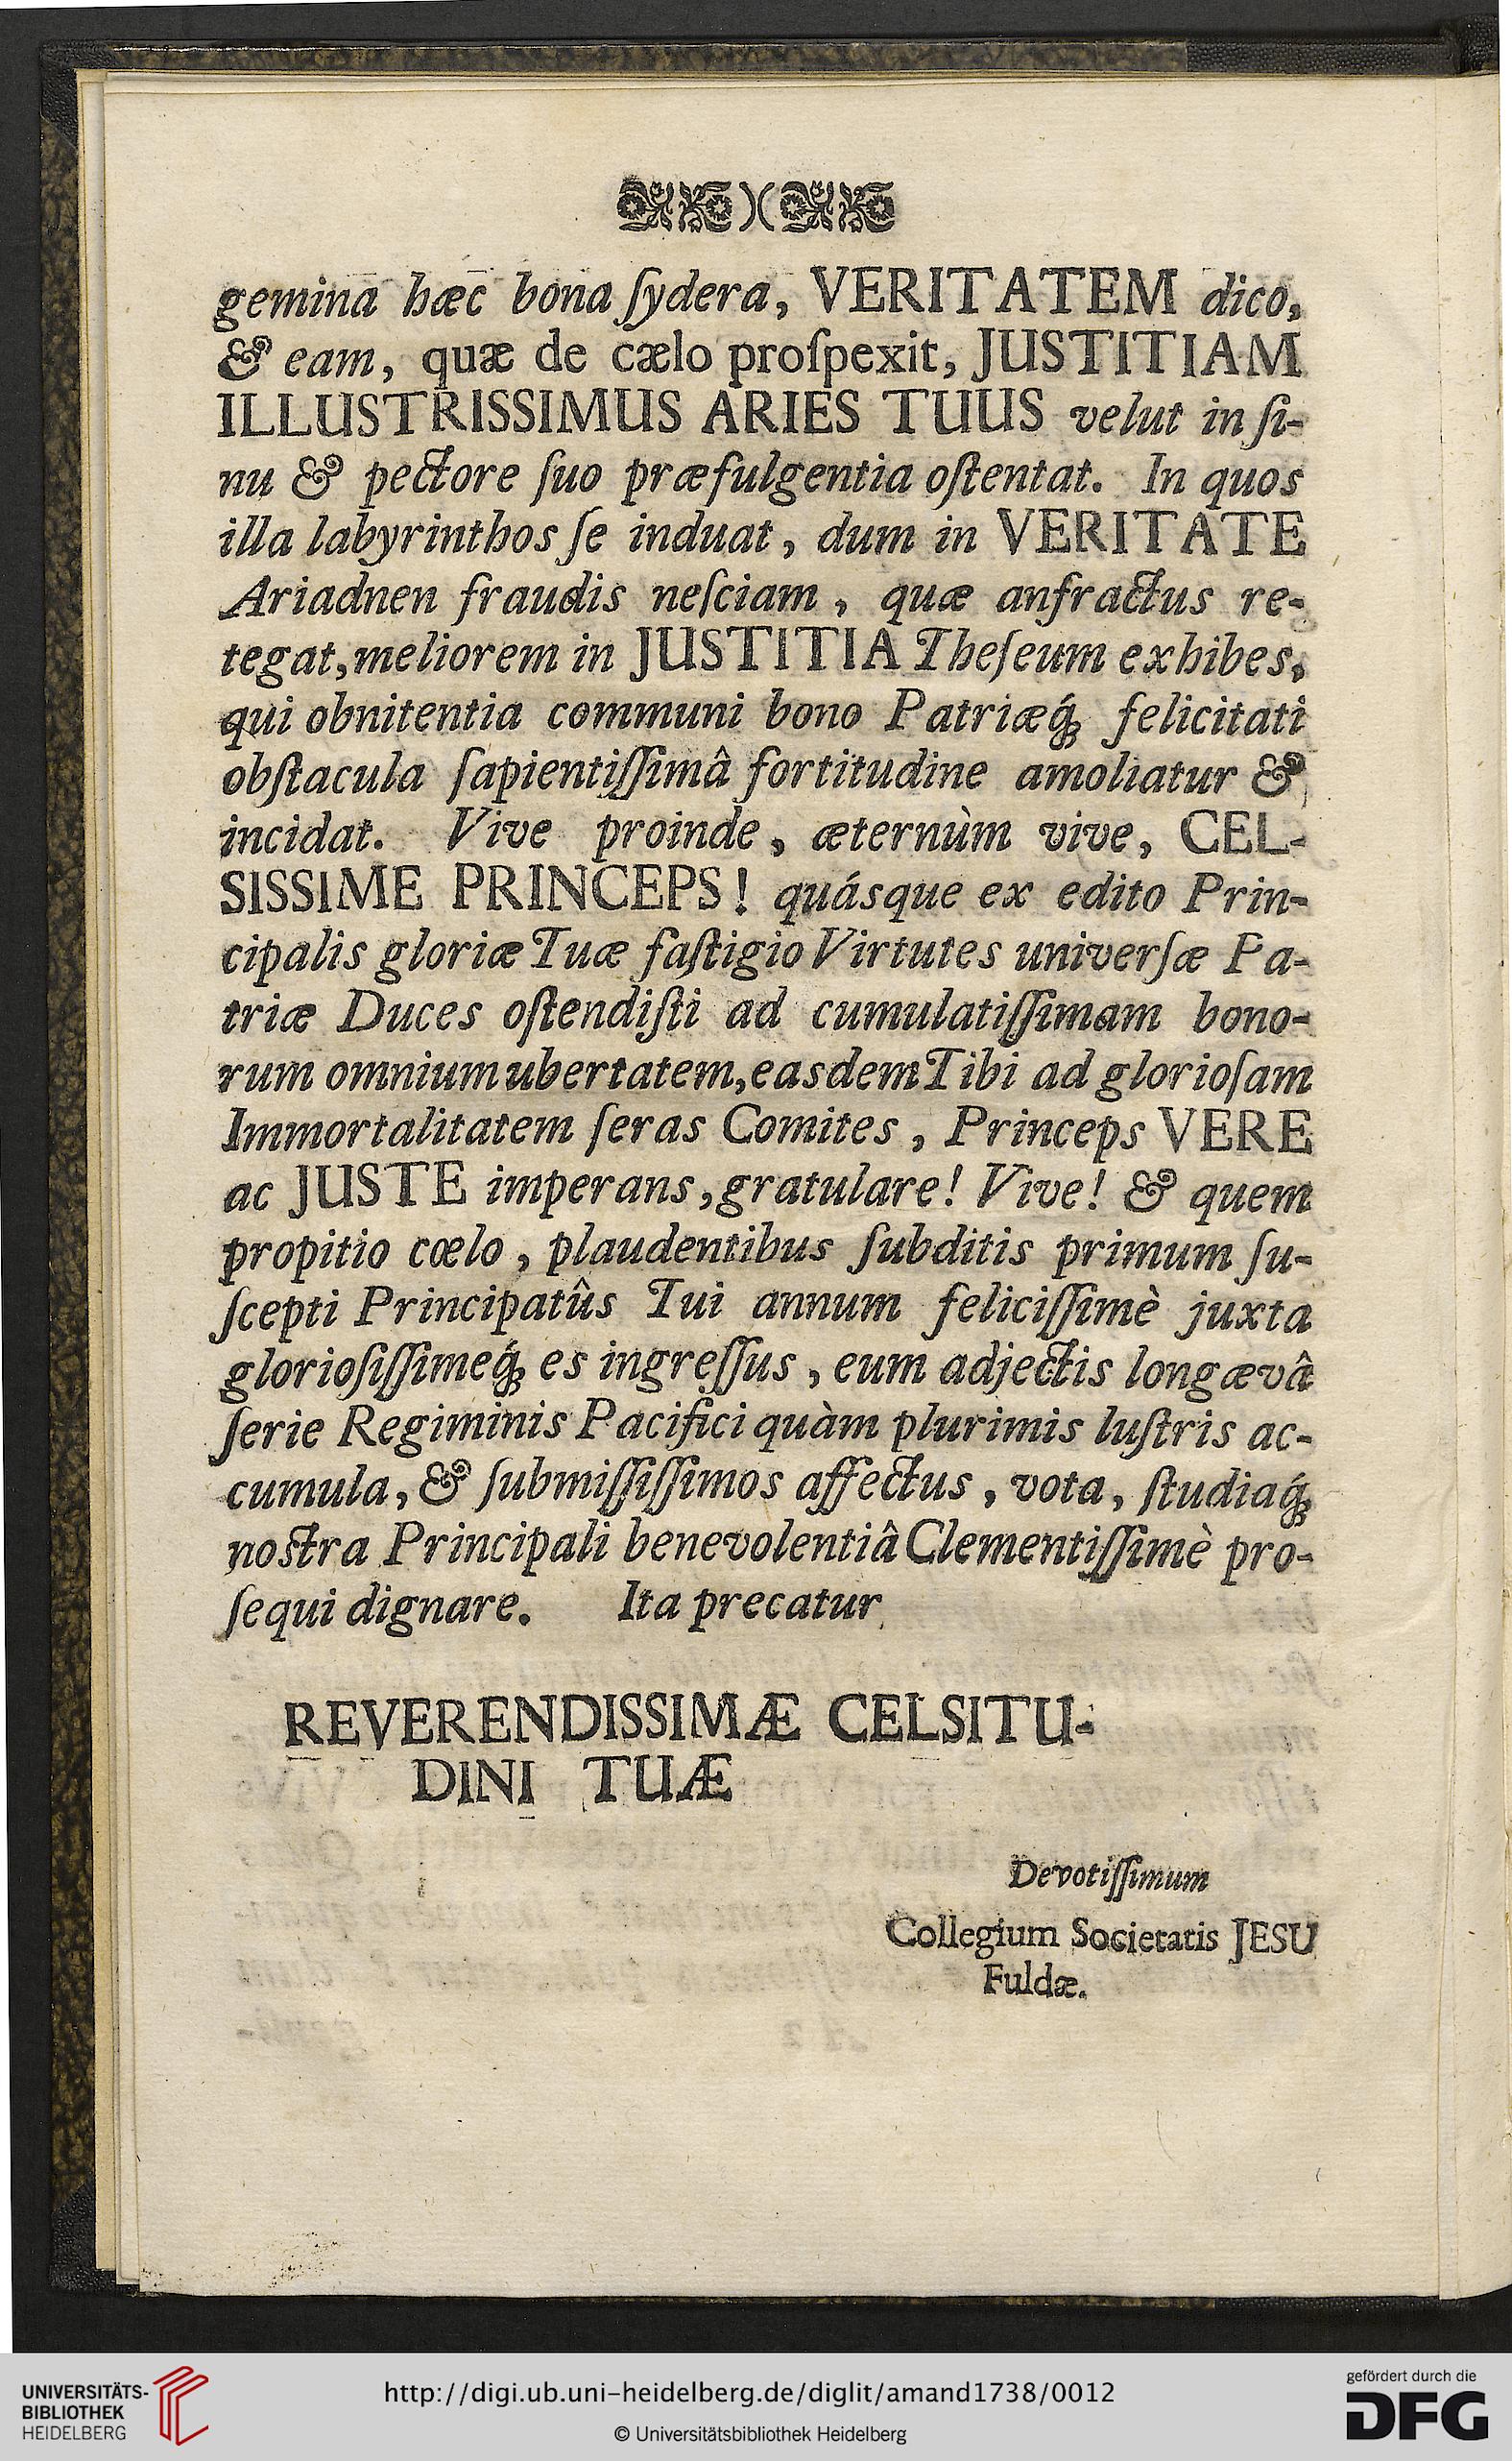 )(
gemina hæc bona ſydera, VERITATEM dico,
& eam, quæ de cælo proſpexit, JUSTITIAM
ILLUSTRISSIMUS ARIES TUUS velut in ſi-
nu & pectore ſuo præfulgentia oſtentat. In quos
illa labyrinthos ſe induat, dum in VERITATE
Ariadnen fraudis neſciam, quæ anfractus re-
tegat, meliorem in JUSTITIA Theſeum exhibes,
qui obnitentia communi bono Patriæq́; felicitati
obſtacula ſapientiſſimâ fortitudine amoliatur &
incidat. Vive proinde, æternùm vive, CEL-
SISSIME PRINCEPS! quásque ex edito Prin-
cipalis gloriæ Tuæ faſtigio Virtutes univerſæ Pa-
triæ Duces oſtendiſti ad cumulatiſſimam bono-
rum omnium ubertatem, easdem Tibi ad glorioſam
Immortalitatem ſeras Comites, Princeps VERE
ac JUSTE imperans, gratulare! Vive! & quem
propitio cœlo, plaudentibus ſubditis primum ſu-
ſcepti Principatûs Tui annum feliciſſimè juxta
glorioſiſſimeq́; es ingreſſus, eum adjectis longævâ
ſerie Regiminis Pacifici quàm plurimis luſtris ac-
cumula, & ſubmiſſiſſimos affectus, vota, ſtudiaq́;
noſtra Principali benevolentiâ Clementiſſimè pro-
ſequi dignare. Ita precatur
REVERENDISSIMÆ CELSITU-
DINI TUÆ
Devotiſſimum
Collegium Societatis JESU
Fuldæ.
UNIVERSITÄTS-
BIBLIOTHEK
HEIDELBERG
http://digi.ub.uni-heidelberg.de/diglit/amand1738/0012
© Universitätsbibliothek Heidelberg
gefördert durch die
DFG